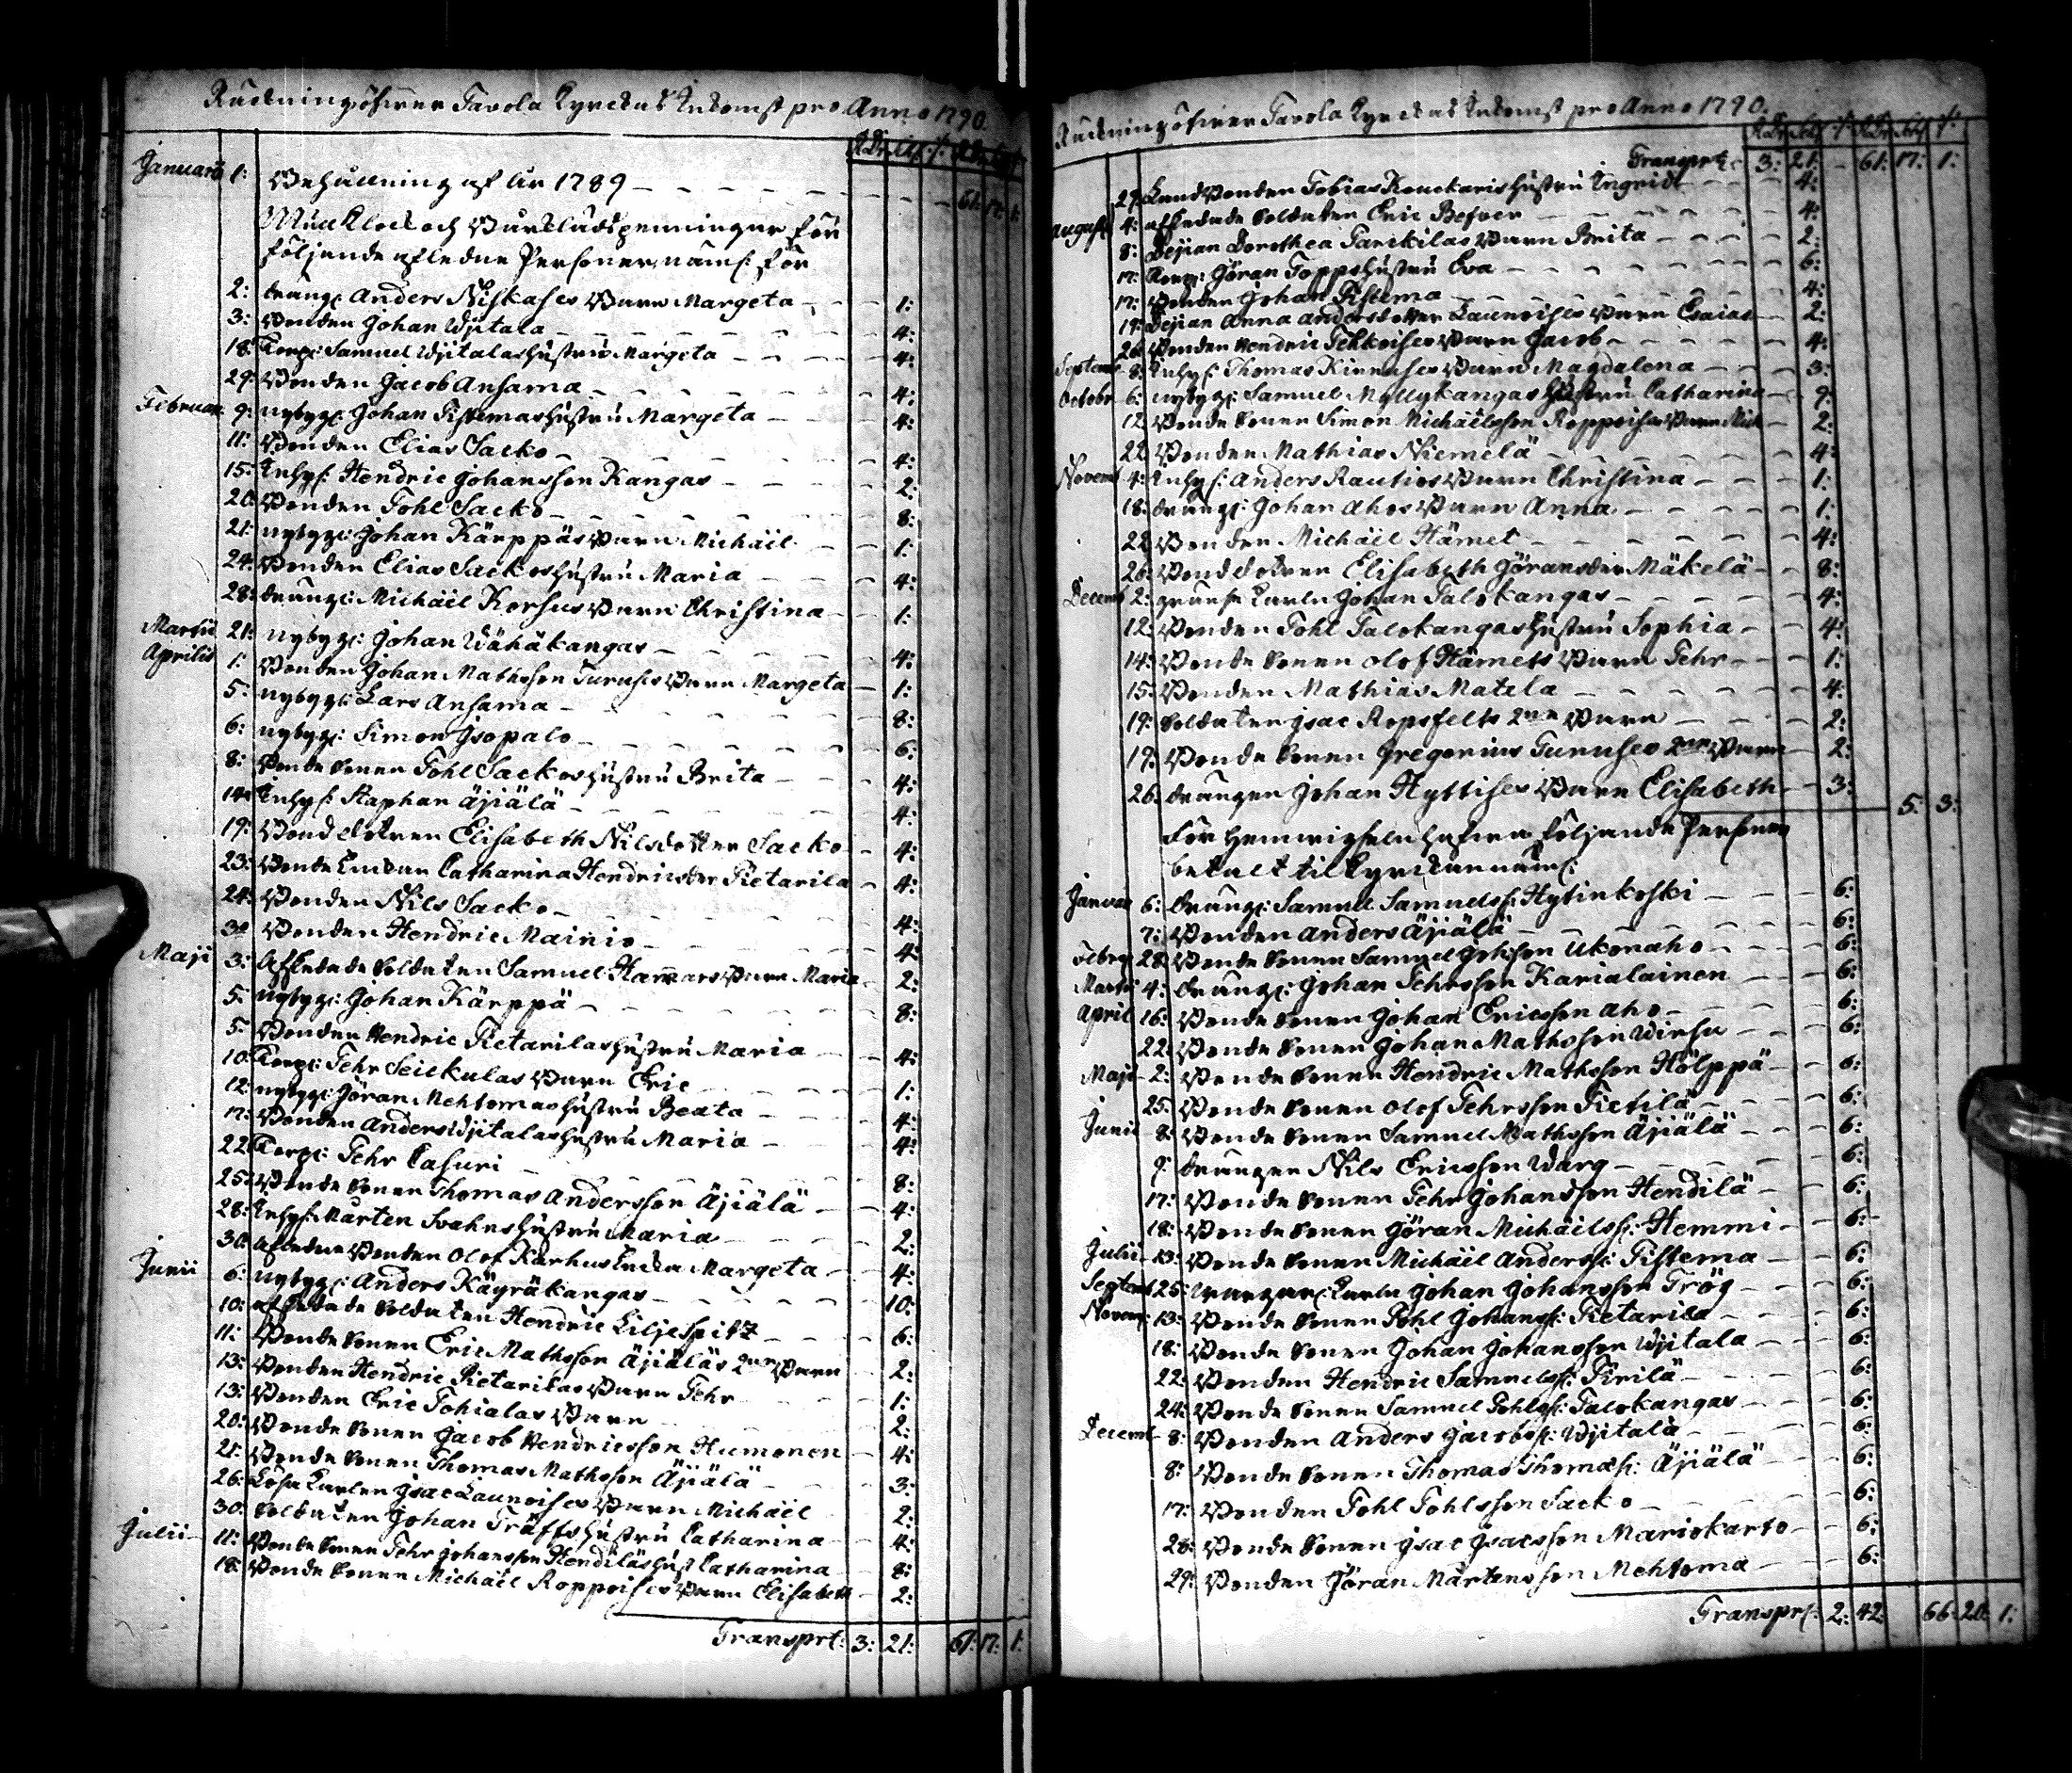 Räckning öfver Pavola Kyrckas Inkomst pro Anno 1790.
R:dr Sch: r: R:dr Sch: r:
Januarii 1: Behållning af år 1789 61: 17: 1:
Mull Klock och Bårklädspenningar för
följande afledne Personer, näml: för
2: dräng: Anders Niskases Barn Margeta 1:
3: Bonden Johan Wjitala 4:
18: Torp: Samuel Wjitalas hustru Margeta 4:
29: Bonden Jacob Ansama 4:
Februar 9: nybyg: Johan Pistemas hustru Margeta 4:
11: Bonden Elias Sacko 4:
15: Inhys: Hendric Johansson Kangas 2:
20: Bonden Pohl Sacko 8:
21: nybyg: Johan Kärppäs Barn Michäel 1:
24: Bonden Elias Sackos hustru Maria 4:
28: dräng: Michäel Korhus Barn Christina 1:
Martii 21: nybyg: Johan Wähäkangas 4:
Aprilis 1: Bonden Johan Mathsson Turuses Barn Margeta 1:
5: nybyg: Lars Ansama 8:
6: nybyg: Simon Jsopalo 6:
8: Bonde Sonen Pohl Sackos hustru Brita 4:
14: Inhys: Staphan Äjiälä 4:
19: Bond dotren Elisabeth Nilsdotter Sacko 4:
23: Bonde Enckan Catharina Hendricsdter Pietarila 4:
24: Bonden Nils Sacko 4:
30 Bonden Hendric Mainio 4:
Maji 3: Afskedade Soldaten Samuel Hamars Barn Maria 2:
5: nybyg: Johan Kärppä 8:
5: Bonden Hendric Pietarilas hustru Maria 4:
10: Torp: Pehr Seickulas Barn Eric 1:
12: nybyg: Jöran Mehtomas hustru Beata 4:
17: Bonden Anders Wjitalas hustru Maria 4:
22: Torp: Pehr Casuri 8:
25: Bonde Sonen Thomas Andersson Äjiälä 4:
28: Inhys: Mårten Svahns hustru Maria 2:
30 afledne Bonden Olof Karhus Encka Margeta 4:
Junii 6: nybyg: Anders Käyräkangas 10:
10: afskedade Soldaten Hendric Liljespitz 6:
11: Bonde Sonen Eric Mathsson Äjiäläs 2ne Barn 2:
13: Bonden Hendric Pietarilas Barn Pehr 1:
13: Bonden Eric Pohialas Barn 2:
20: Bonde Sonen Jacob Hendricsson Humonen 4:
21: Bonde Sonen Thomas Mathsson Äjiälä 3:
26: Lösa Karlen Jsac Launoises Barn Michäel 2:
30: Soldaten Johan Träffs hustru Catharina 4:
Julii 11: Bonde Sonen Pehr Johansson Hendiläs hust Catharina 8:
18: Bonde Sonen Michäel Roppoises Barn Elisabeth 2:
Transprt: 3: 21: 61: 17: 1:
Räckning öfver Pavola Kyrckas Inkomst pro Anno 1790.
R:dr Sch: r: R:dr Sch: r:
Transprt: 3: 21: 61: 17: 1:
29: Landbonden Tobias Kouckaris hustru Ingrid 4:
August 4: afskedade Soldaten Eric Besver 4:
8: Pejian Dorothea Parckilas Barn Brita 2:
17: Torp: Jöran Topps hustru Eva 6:
17: Bonden Johan Pistema 4:
19: Pejian Anna andersdotter Launoises Barn Esaias 2:
26: Bonden Hendric Pekkoises Barn Jacob 4:
Septemb 8: Inhys: Thomas Kinnuses Barn Magdalena 3:
Octobr 6: nybyg: Samuel Myllykangas hustru Catharina 9:
12 Bonde Sonen Simon Michäelsson Roppoises Barn Mich 2:
22 Bonden Mathias Niemelä 4:
Novemb 4: Inhys: Anders Rautios Barn Christina 1:
18: dräng: Johan Ahos Barn Anna 1:
22 Bonden Michäel Hämet 4:
26: Bonddotren Elisabeth Jöransdter Mäkelä 8:
Decemb 2: Karln Johan Talokangas 4:
12: Bonden Pohl Talokangas hustru Sophia 4:
14: Bonde Sonen Olof Hämets Barn Pehr 1:
15: Bonden Mathias Matela 4:
19: Soldaten Jsac Ropsfelts 2ne Barn 2:
19: Bonde Sonen Gregorius Turuses 2ne Barn 2:
26: drängen Johan Hyttises Barn Elisabeth 3:
5: 3:
För Hemvigseln hafva följande Personer
betalt til Kyrckan näml:
Januar 6: dräng: Samuel Samuelss: Hytinkoski 6:
7: Bonden Anders Äjiälä 6:
Febry 28: Bonde Sonen Samuel Johsson Ukonaho 6:
Martii 4: dräng: Johan Pehrsson Karialainen 6:
April 16: Bonde Sonen Johan Ericsson Aho 6:
22: Bonde Sonen Johan Mathsson Wirsu 6:
Maji 2: Bonde Sonen Hendric Mathsson Hölppä 6:
25: Bonde Sonen Olof Pehrsson Pietilä 6:
Junii 8: Bonde Sonen Samuel Mathsson Äjiälä 6:
9: drängen Nils Ericsson Warg 6:
17: Bonde Sonen Pehr Johansson Hendilä 6:
18: Bonde Sonen Jöran Michäelss: Hemmi 6:
Julii 13: Bonde Sonen Michäel Anderss: Pistema 6:
Septem 25: Karln Johan Johansson Trög 6:
Novemb: 13: Bonde Sonen Pohl Johanss: Pietarila 6:
18: Bonde Sonen Johan Johansson Wjitala 6:
22: Bonden Hendric Samuelss: Pirilä 6:
24: Bonde Sonen Samuel Pohlss: Talokangas 6:
Decemb 8: Bonden Anders Jacobss: Wjitala 6:
8: Bonde Sonen Thomas Thomæss: Äjiälä 6:
17: Bonden Pohl Pohlsson Sacko 6:
28: Bonde Sonen Jsac Jsacsson Mariokarto 6:
29: Bonden Jöran Mårtensson Mehtoma 6:
Transprt: 2: 42: 66: 20: 1: